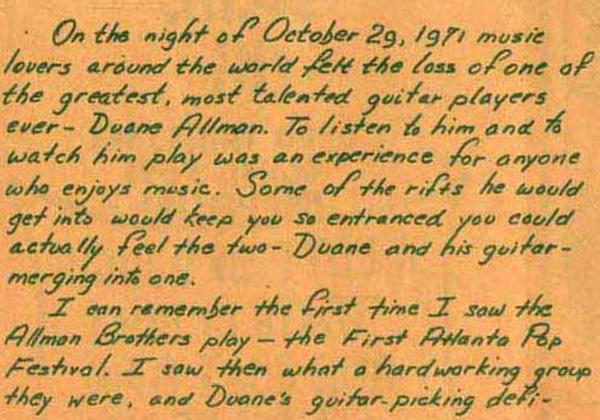 On the night of October 29, 1971 music
lovers around the world felt the loss of one of
the greatest, most talented guitar players
ever- Duane Allman. To listen to him and to
watch him play was an experience for anyone
who enjoys music. Some of the riffs he would
get into would keep you so entranced you could
actually feel the two- Duane and his guitar-
merging into one.
I can remember the first time I saw the
Allman Brothers play - the First Atlanta Pop
Festival. I saw then what a hardworking group
they were, and Duane's guitar-picking defi-